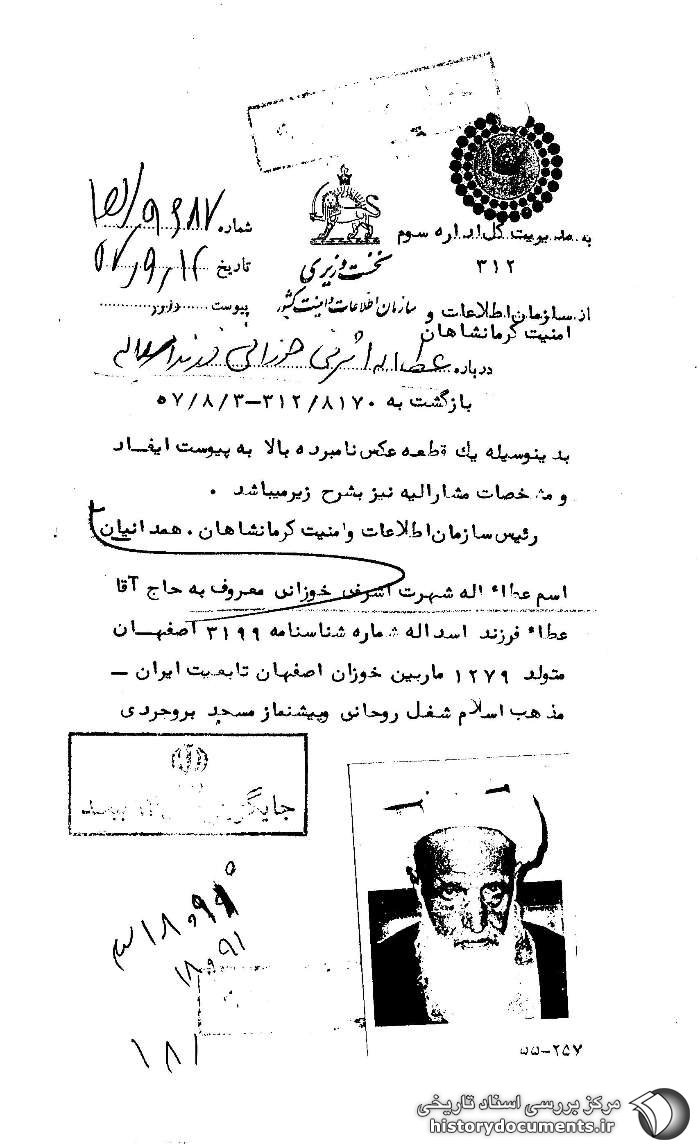 به مدیریت کل اداره سوم
۳۱۲
از سازمان اطلاعات و
امنیت کرمانشاهان
نخست وزیری
سازمان اطلاعات و امنیت کشور
شماره
تاریخ ۵۷/۹/۱۲
پیوست دارد
درباره عطااله اشرفی خوزانی فرزند اسداله
بازگشت به ۳۱۲/۸۱۷۰-۵۷/۸/۳
بدینوسیله یك قطعه عکس نامبرده بالا به پیوست ایفاد
و مشخصات مشارالیه نیز بشرح زیر میباشد .
رئیس سازمان اطلاعات و امنیت کرمانشاهان . همدانیان
اسم عطاء اله شهرت اشرفی خوزانی معروف به حاج آقا
عطاء فرزند اسداله شماره شناسنامه ۳۱۹۹ اصفهان
متولد ۱۲۷۹ ماربین خوزان اصفهان تابعیت ایران –
مذهب اسلام شغل روحانی وپیشنماز مسجد بروجردی
۱۸۰۹۱
۱۸۱
۵۵-۲۵۷
مرکز بررسی اسناد تاریخی
historydocuments.ir